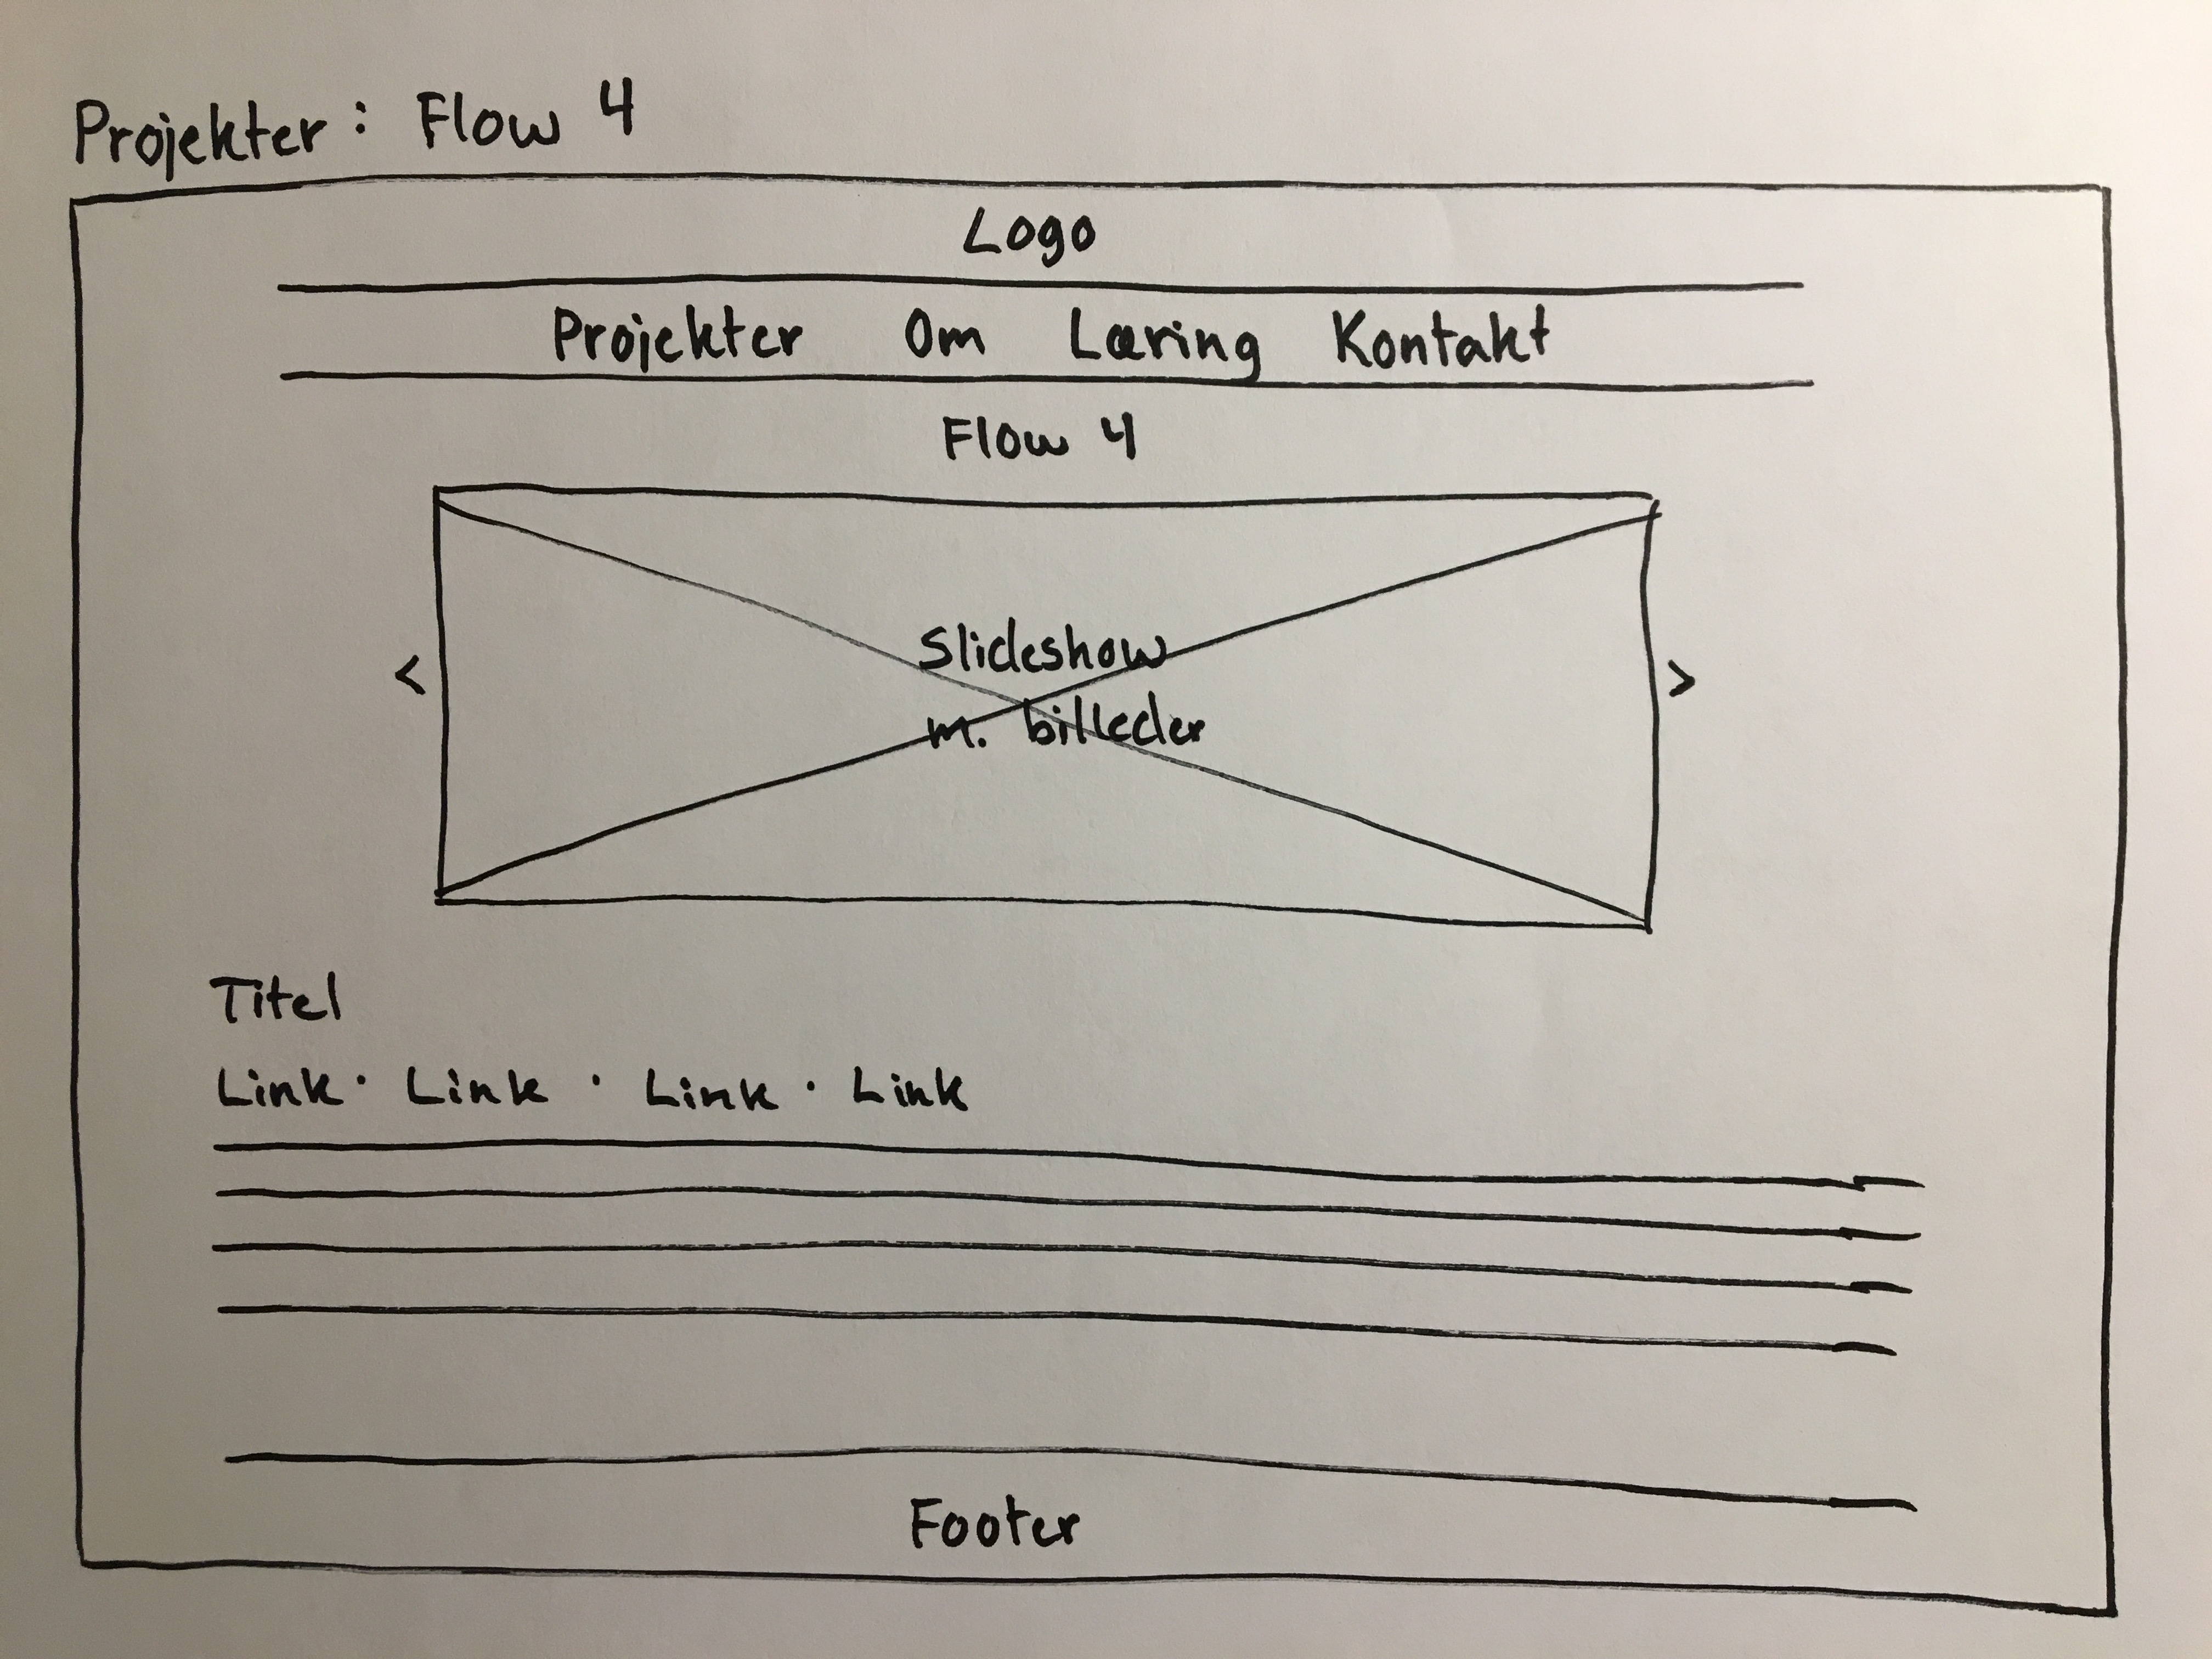 Projekter: Flow 4
Logo
Projekter Om Læring Kontakt
Flow 4
Slideshow
< >
m. billeder
Titel
Link · Link · Link · Link
Footer